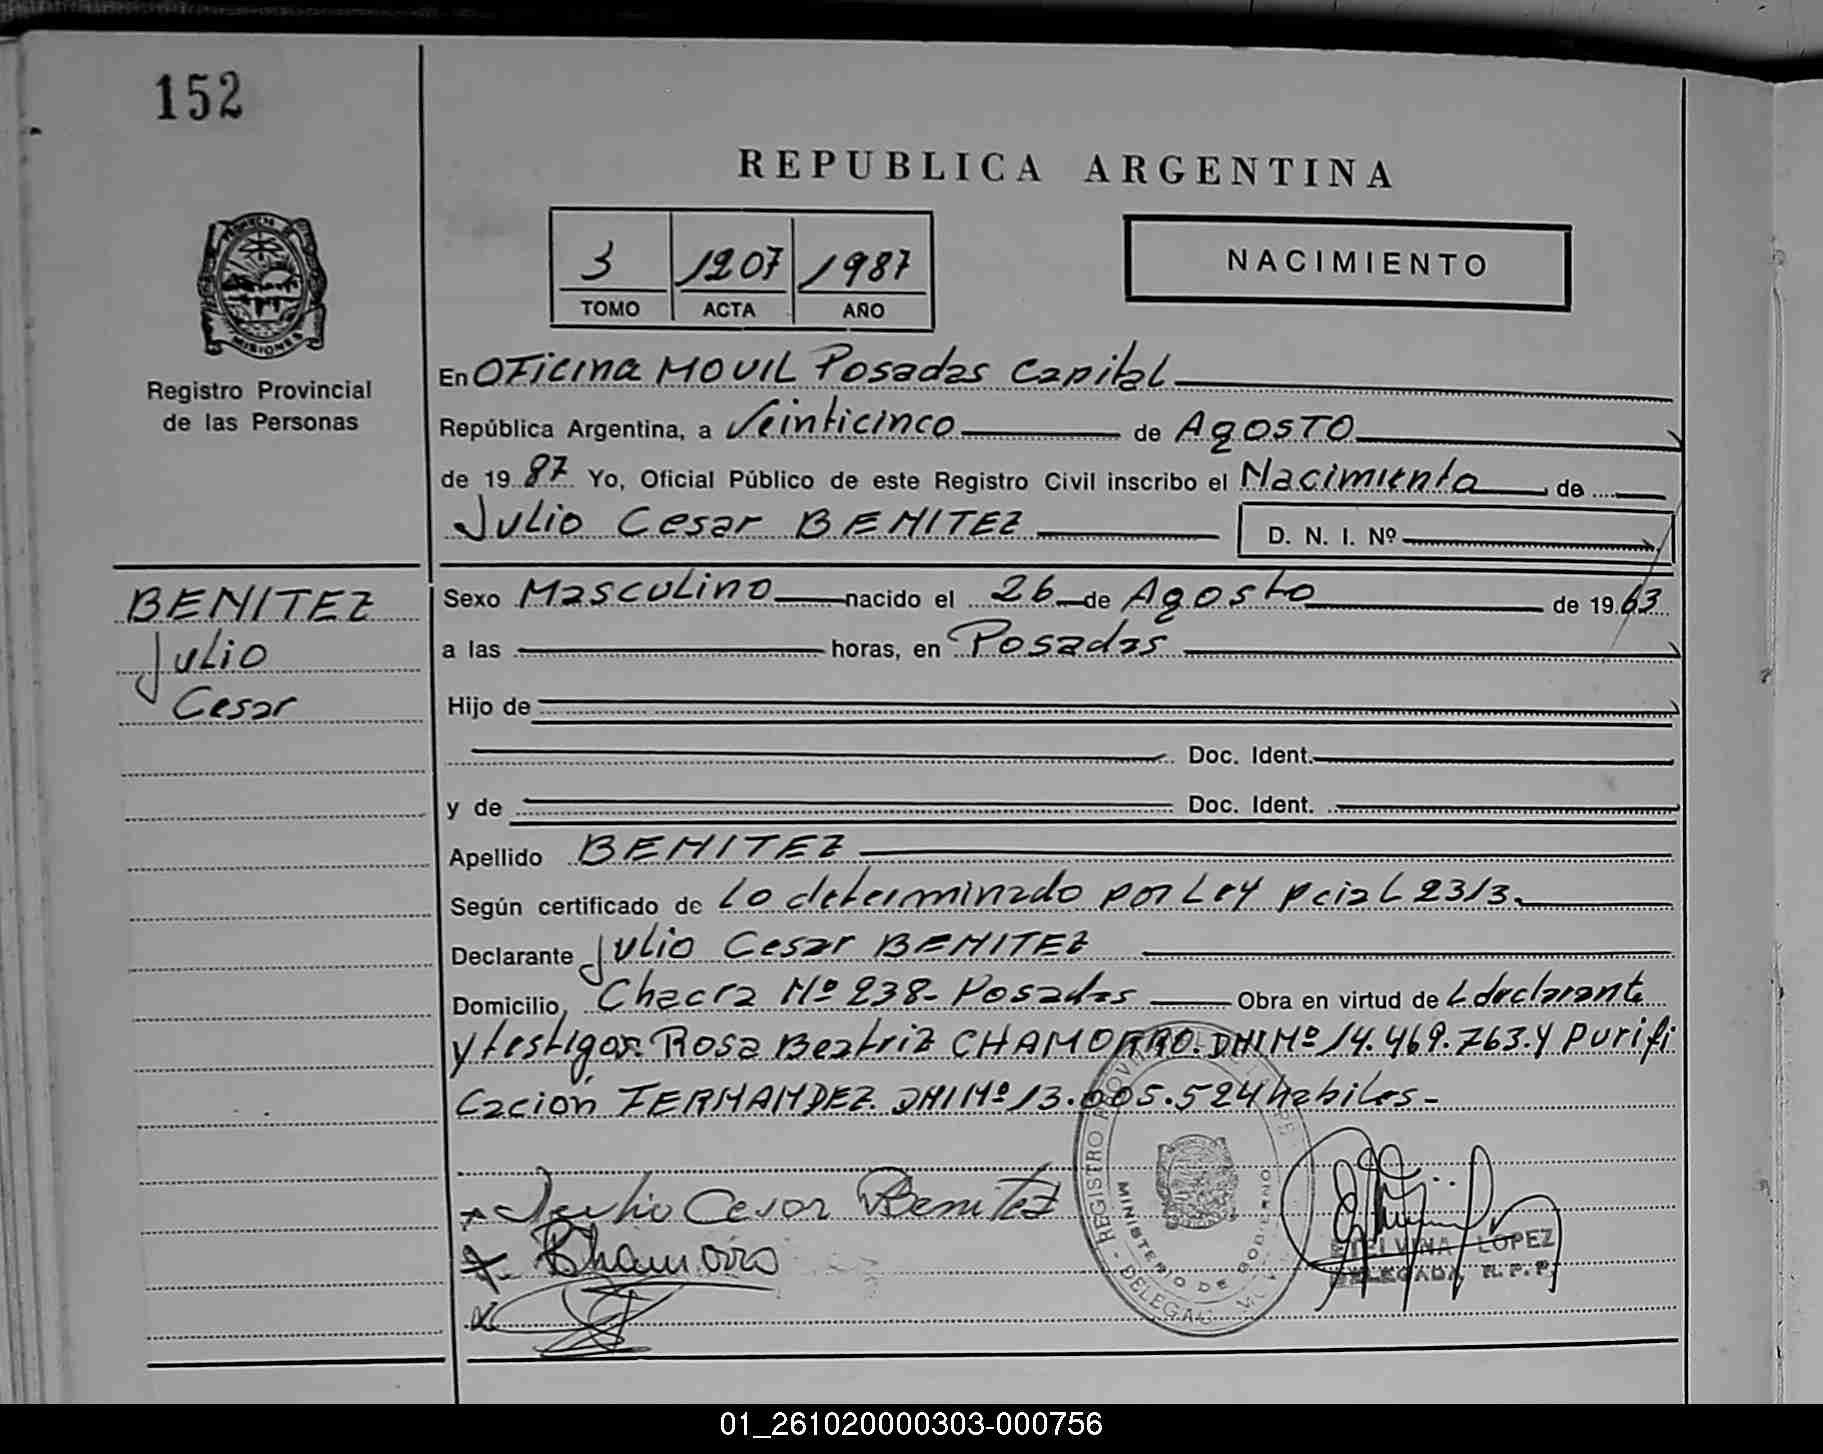 152
REPUBLICA ARGENTINA
3 1207 1987
TOMO ACTA AÑO
NACIMIENTO
MISIONES
Registro Provincial
de las Personas
En Oficina MOVIL Posadas Capital
República Argentina, a Veinticinco de Agosto
de 1987 Yo, Oficial Público de este Registro Civil inscribo el Nacimiento de
Julio Cesar BENITEZ D. N. I. Nº
BENITEZ
Julio
Cesar
Sexo Masculino nacido el 26 de Agosto de 1963
a las horas, en Posadas
Hijo de
Doc. Ident.
y de Doc. Ident.
Apellido BENITEZ
Según certificado de lo determinado por Ley pcial 2313.
Declarante Julio Cesar BENITEZ
Domicilio, Chacra Nº 238- Posadas Obra en virtud de L declarante
y testigos. Rosa Beatriz CHAMORRO. DNI Nº 14.469.763. Y Purifi
cación FERNANDEZ. DNI Nº 13.005.524 habiles-
Julio Cesar Benitez
Chamorro
REGISTRO
MINISTERIO DE GOBIERNO
ETELVINA LOPEZ
DELEGADA R.P.P.
01_261020000303-000756